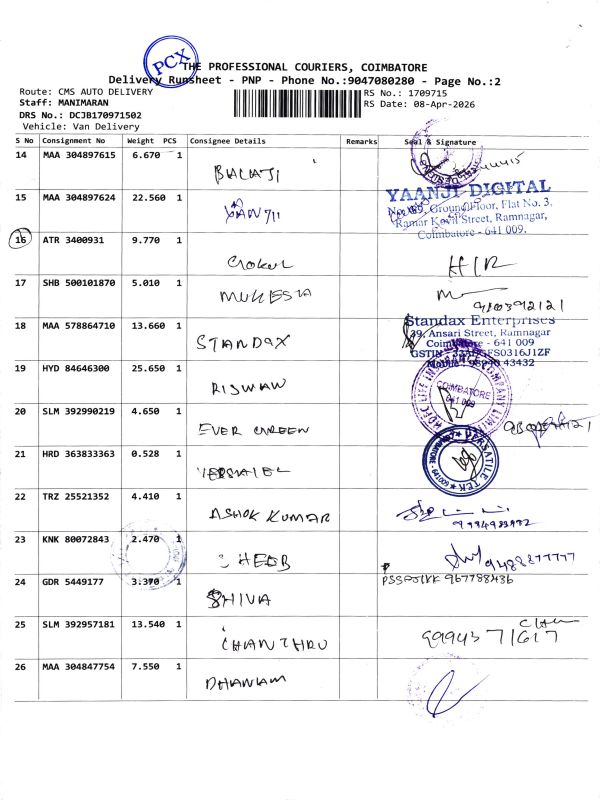 PCX
THE PROFESSIONAL COURIERS, COIMBATORE
Delivery Runsheet - PNP - Phone No.:9047080280 - Page No.:2
Route: CMS AUTO DELIVERY
RS No.: 1709715
Staff: MANIMARAN
RS Date: 08-Apr-2026
DRS No.: DCJB170971502
Vehicle: Van Delivery
S No Consignment No Weight PCS Consignee Details Remarks Seal & Signature
14 MAA 304897615 6.670 1 BALAJI
15 MAA 304897624 22.560 1 YAANJI
YAANJI DIGITAL
Ground Floor, Flat No. 3,
Ramar Kovil Street, Ramnagar,
Coimbatore - 641 009.
16 ATR 3400931 9.770 1 GOKUL
17 SHB 500101870 5.010 1
18 MAA 578864710 13.660 1 STANDAX
Standax Enterprises
39, Ansari Street, Ramnagar
Coimbatore - 641 009
19 HYD 84646300 25.650 1 RISWAN
HDFC LIFE INSURANCE COMPANY LIMITED
COIMBATORE
641 009
20 SLM 392990219 4.650 1 EVER GREEN
21 HRD 363833363 0.528 1
VERSATILE TEK
COIMBATORE - 641009
22 TRZ 25521352 4.410 1 ASHOK KUMAR
23 KNK 80072843 2.470 1
9488877777
24 GDR 5449177 3.370 1 SHIVA
967788436
25 SLM 392957181 13.540 1 CHANTHRU
9994371617
26 MAA 304847754 7.550 1 DHANAM